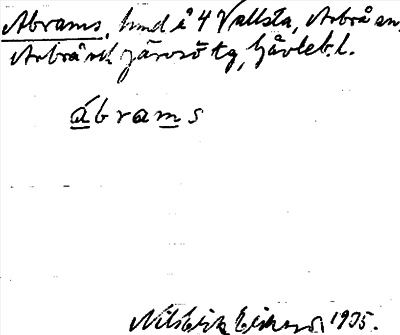 Abrams, hmd å 4 Vallsta, Arbrå sn,
Arbrå och Järvsö tg, Gävleb. l.
abrams
Nils Erik Eriksson 1935.